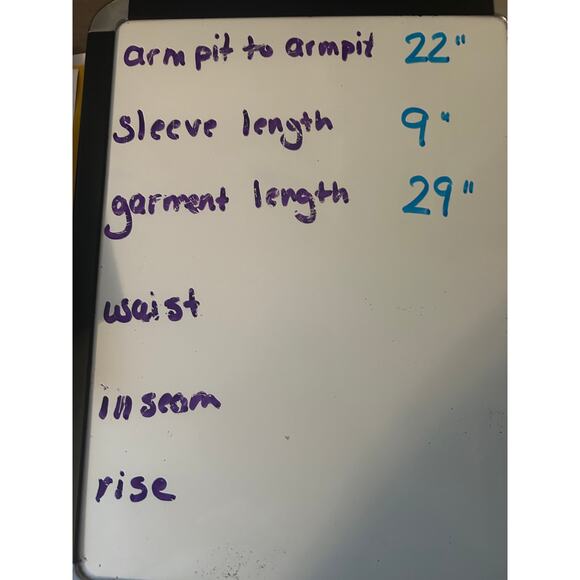 armpit to armpit 22"
sleeve length 9"
garment length 29"
waist
inseam
rise